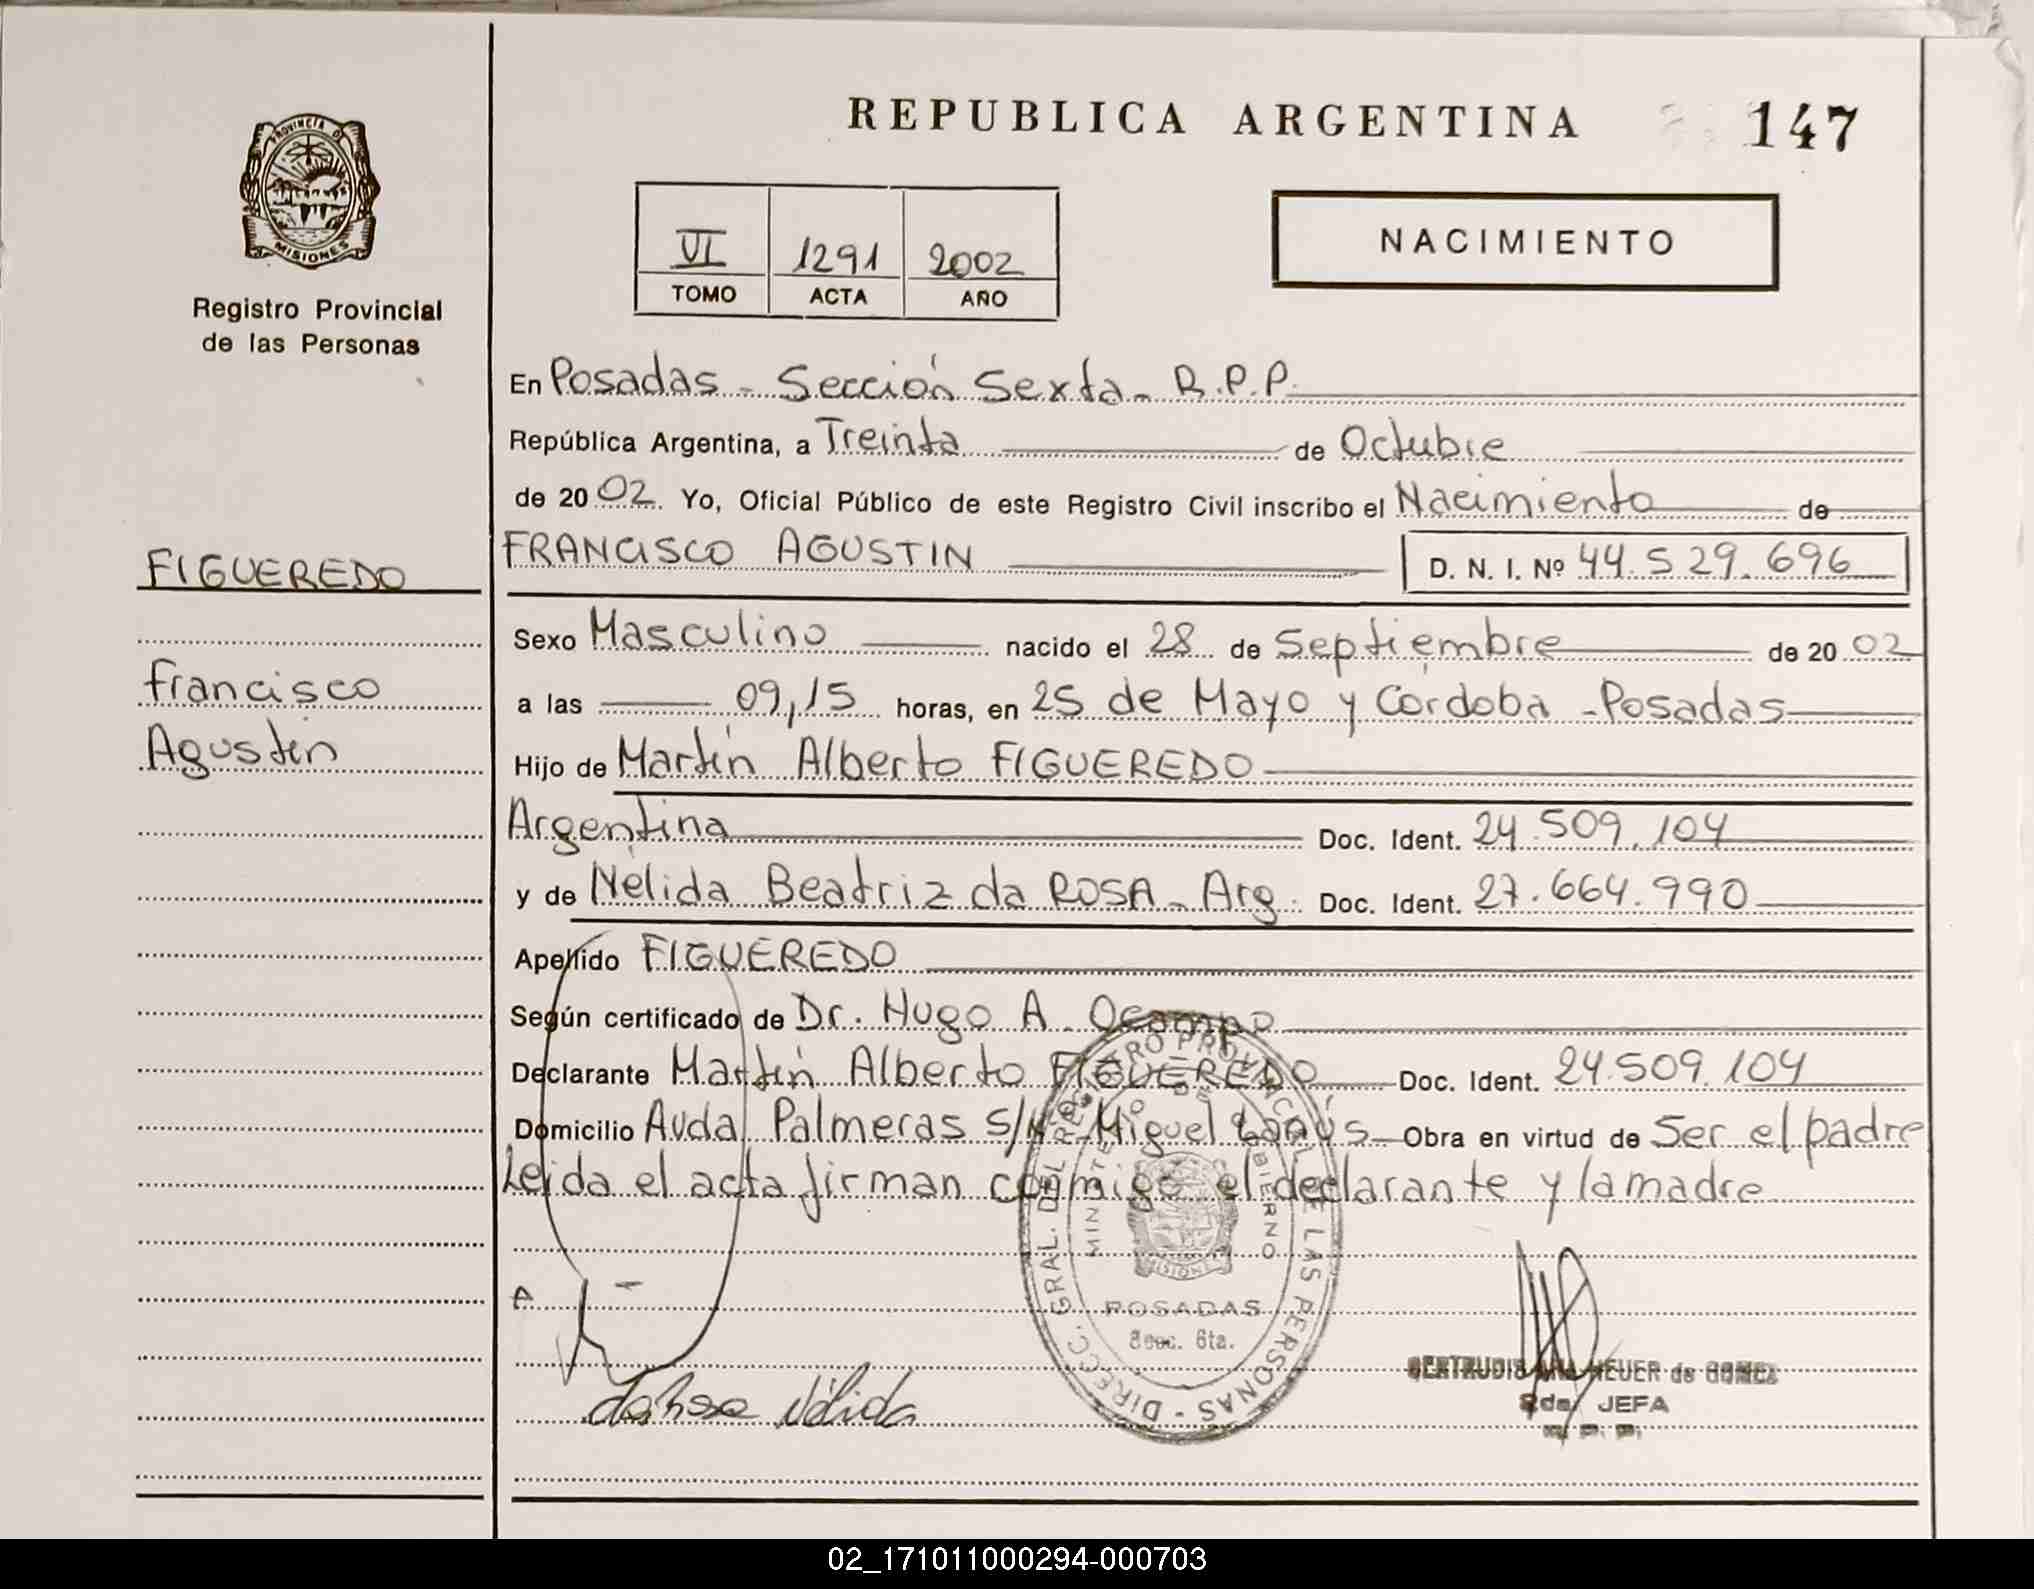 REPUBLICA ARGENTINA
147
PROVINCIA DE
MISIONES
Registro Provincial
de las Personas
VI 1291 2002
TOMO ACTA AÑO
NACIMIENTO
En Posadas - Sección Sexta - R.P.P.
República Argentina, a Treinta de Octubre
de 2002. Yo, Oficial Público de este Registro Civil inscribo el Nacimiento de
FIGUEREDO
FRANCISCO AGUSTIN D. N. I. Nº 44.529.696
Sexo Masculino nacido el 28 de Septiembre de 2002
Francisco
a las 09,15 horas, en 25 de Mayo y Córdoba - Posadas
Agustín
Hijo de Martín Alberto FIGUEREDO
Argentina Doc. Ident. 24.509.104
y de Nélida Beatriz da ROSA - Arg. Doc. Ident. 27.664.990
Apellido FIGUEREDO
Según certificado de Dr. Hugo A. Ocampo
Declarante Martín Alberto FIGUEREDO Doc. Ident. 24.509.104
Domicilio Avda Palmeras s/Nº Miguel Lanús Obra en virtud de Ser el padre
Leída el acta firman conmigo el declarante y la madre
DIRECC. GRAL. DEL REGISTRO PROVINCIAL DE LAS PERSONAS -
MINISTERIO DE GOBIERNO
MISIONES
POSADAS
Secc. 6ta.
da Rosa Nélida
GERTRUDIS ANA HEUER de GOMEZ
2da. JEFA
R. P. P.
02_171011000294-000703